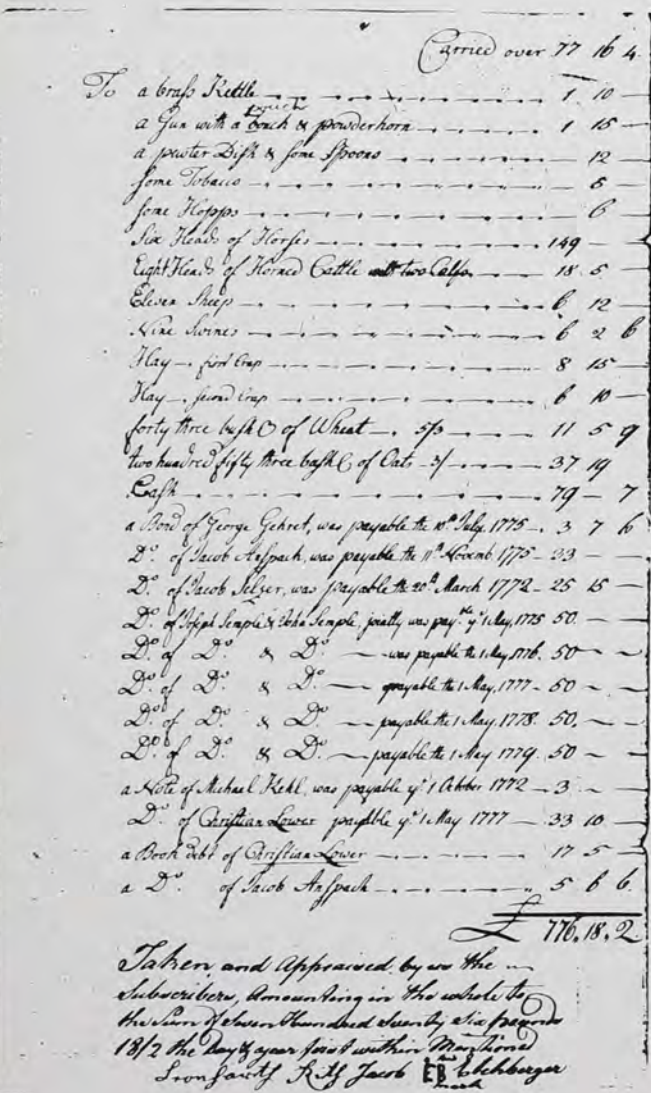 Carried over 77 16 4
To a brass Kettle 1 10 —
pouch
a Gun with a & powderhorn 1 15 —
a pewter Dish & some Spoons 12 —
some Tobacco 5 —
some Hopps 6 —
Six Heads of Horses 149 — —
Eight Heads of Horned Cattle with two Calfs 18 5 —
Eleven Sheep 6 12 —
Nine Swines 6 2 6
Hay — first Crap 8 15 —
Hay — second Crap 6 10 —
forty three bush of Wheat — 5/3 11 5 9
two hundred fifty three bush of Oats — 3/ 37 19
Cash 79 — 7
a Bond of George Gehret, was payable the 10th July, 1775 — 3 7 6
Do. of Jacob Anspach, was payable the 11th Novemb 1775 — 33 — —
Do. of Jacob Selzer, was payable the 20th March 1772 — 25 15 —
Do. of Joseph Semple & John Semple, jointly was pay.ble ye 1 May, 1775 50 — —
Do. of Do. & Do. — was payable the 1 May, 1776. 50 — —
Do. of Do. & Do. — payable the 1 May, 1777 — 50 — —
Do. of Do. & Do. — payable the 1 May, 1778. 50 — —
Do. of Do. & Do. — payable the 1 May 1779. 50 — —
a Note of Michael Kehl, was payable ye 1 October 1772 — 3 — —
Do. of Christian Lower payable ye 1 May 1777 — 33 10 —
a Book debt of Christian Lower 17 5 —
a Do. of Jacob Anspach 5 6 6
£ 776. 18. 2
Taken and Appraised by us the
Subscribers, Amounting in the whole to
the Sum of Seven Hundred Seventy Six pounds
18/2 the Day & year first within Mentioned
Jacob EB Echberger
mark